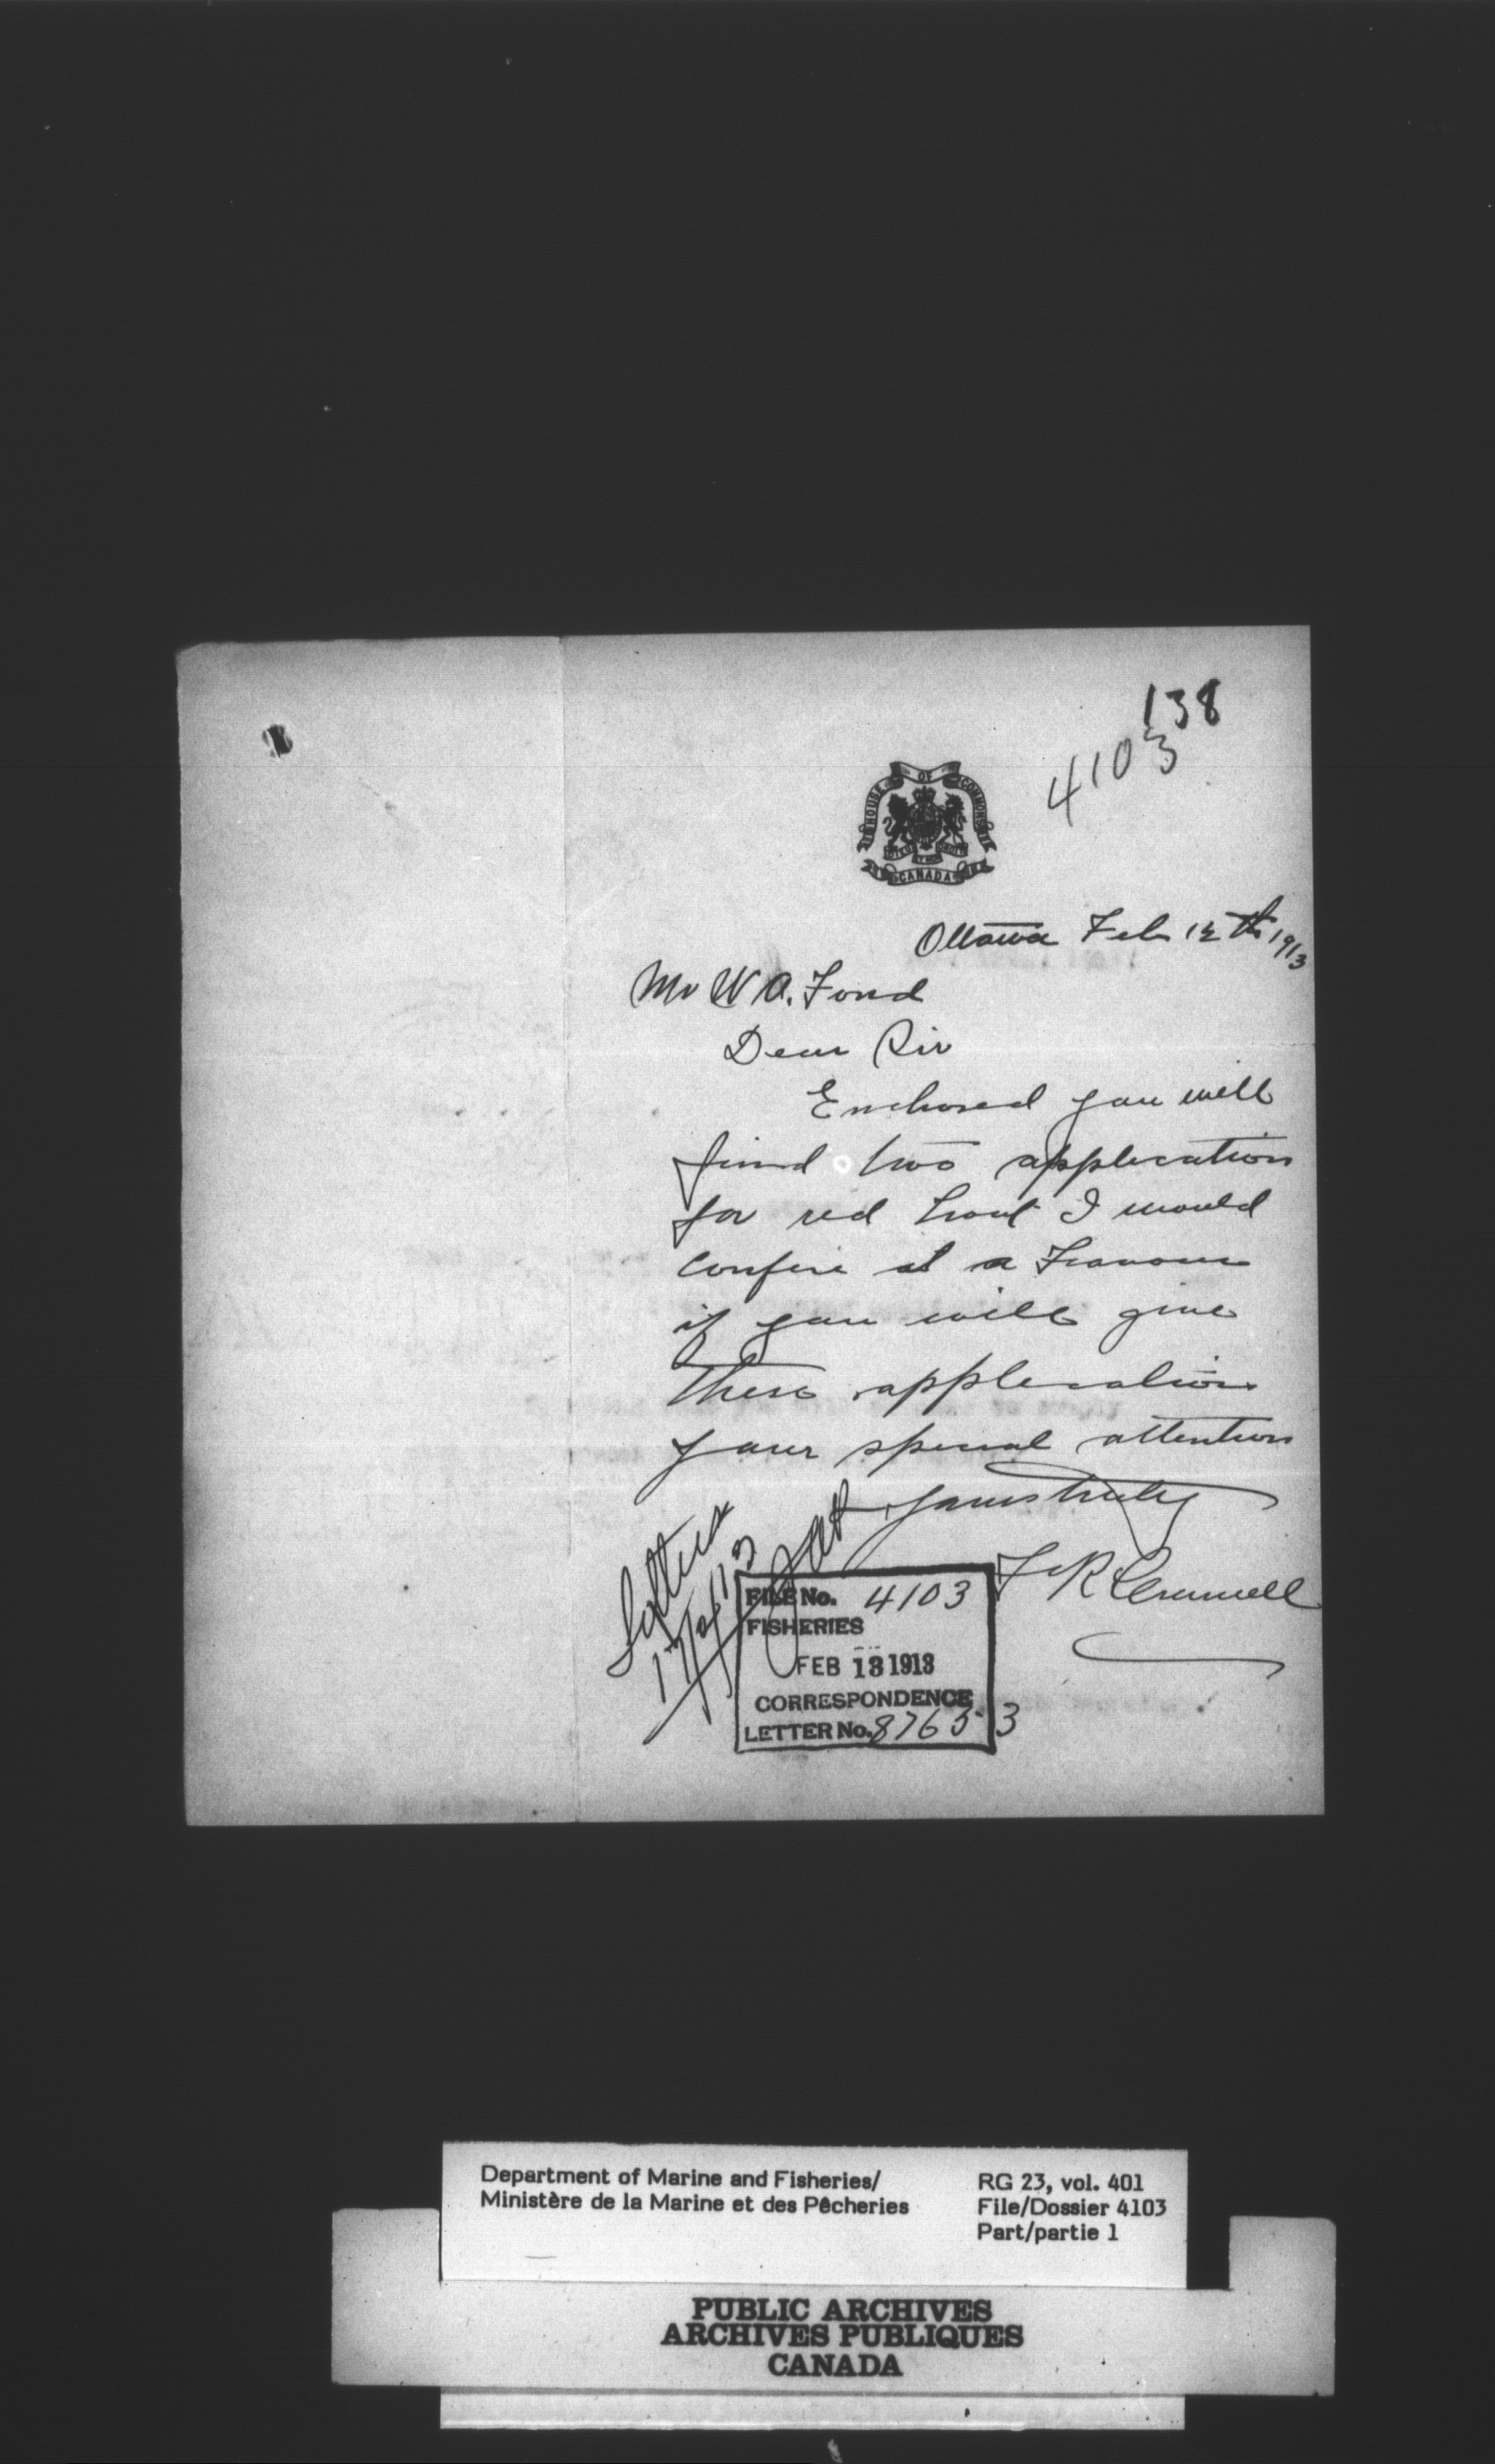 138
4103
HOUSE OF COMMONS
CANADA
Ottawa Feb 12th 1913
Mr W A. Found
Dear Sir
Enclosed you will
find two application
for red trout I would
confire it a Favour
if you will give
these application
your special attention
yours truly
F R Cromwell
Letters
17/2/13
FILE No. 4103
FISHERIES
FEB 13 1913
CORRESPONDENCE
LETTER No. 87653
Department of Marine and Fisheries/
Ministère de la Marine et des Pêcheries
RG 23, vol. 401
File/Dossier 4103
Part/partie 1
PUBLIC ARCHIVES
ARCHIVES PUBLIQUES
CANADA